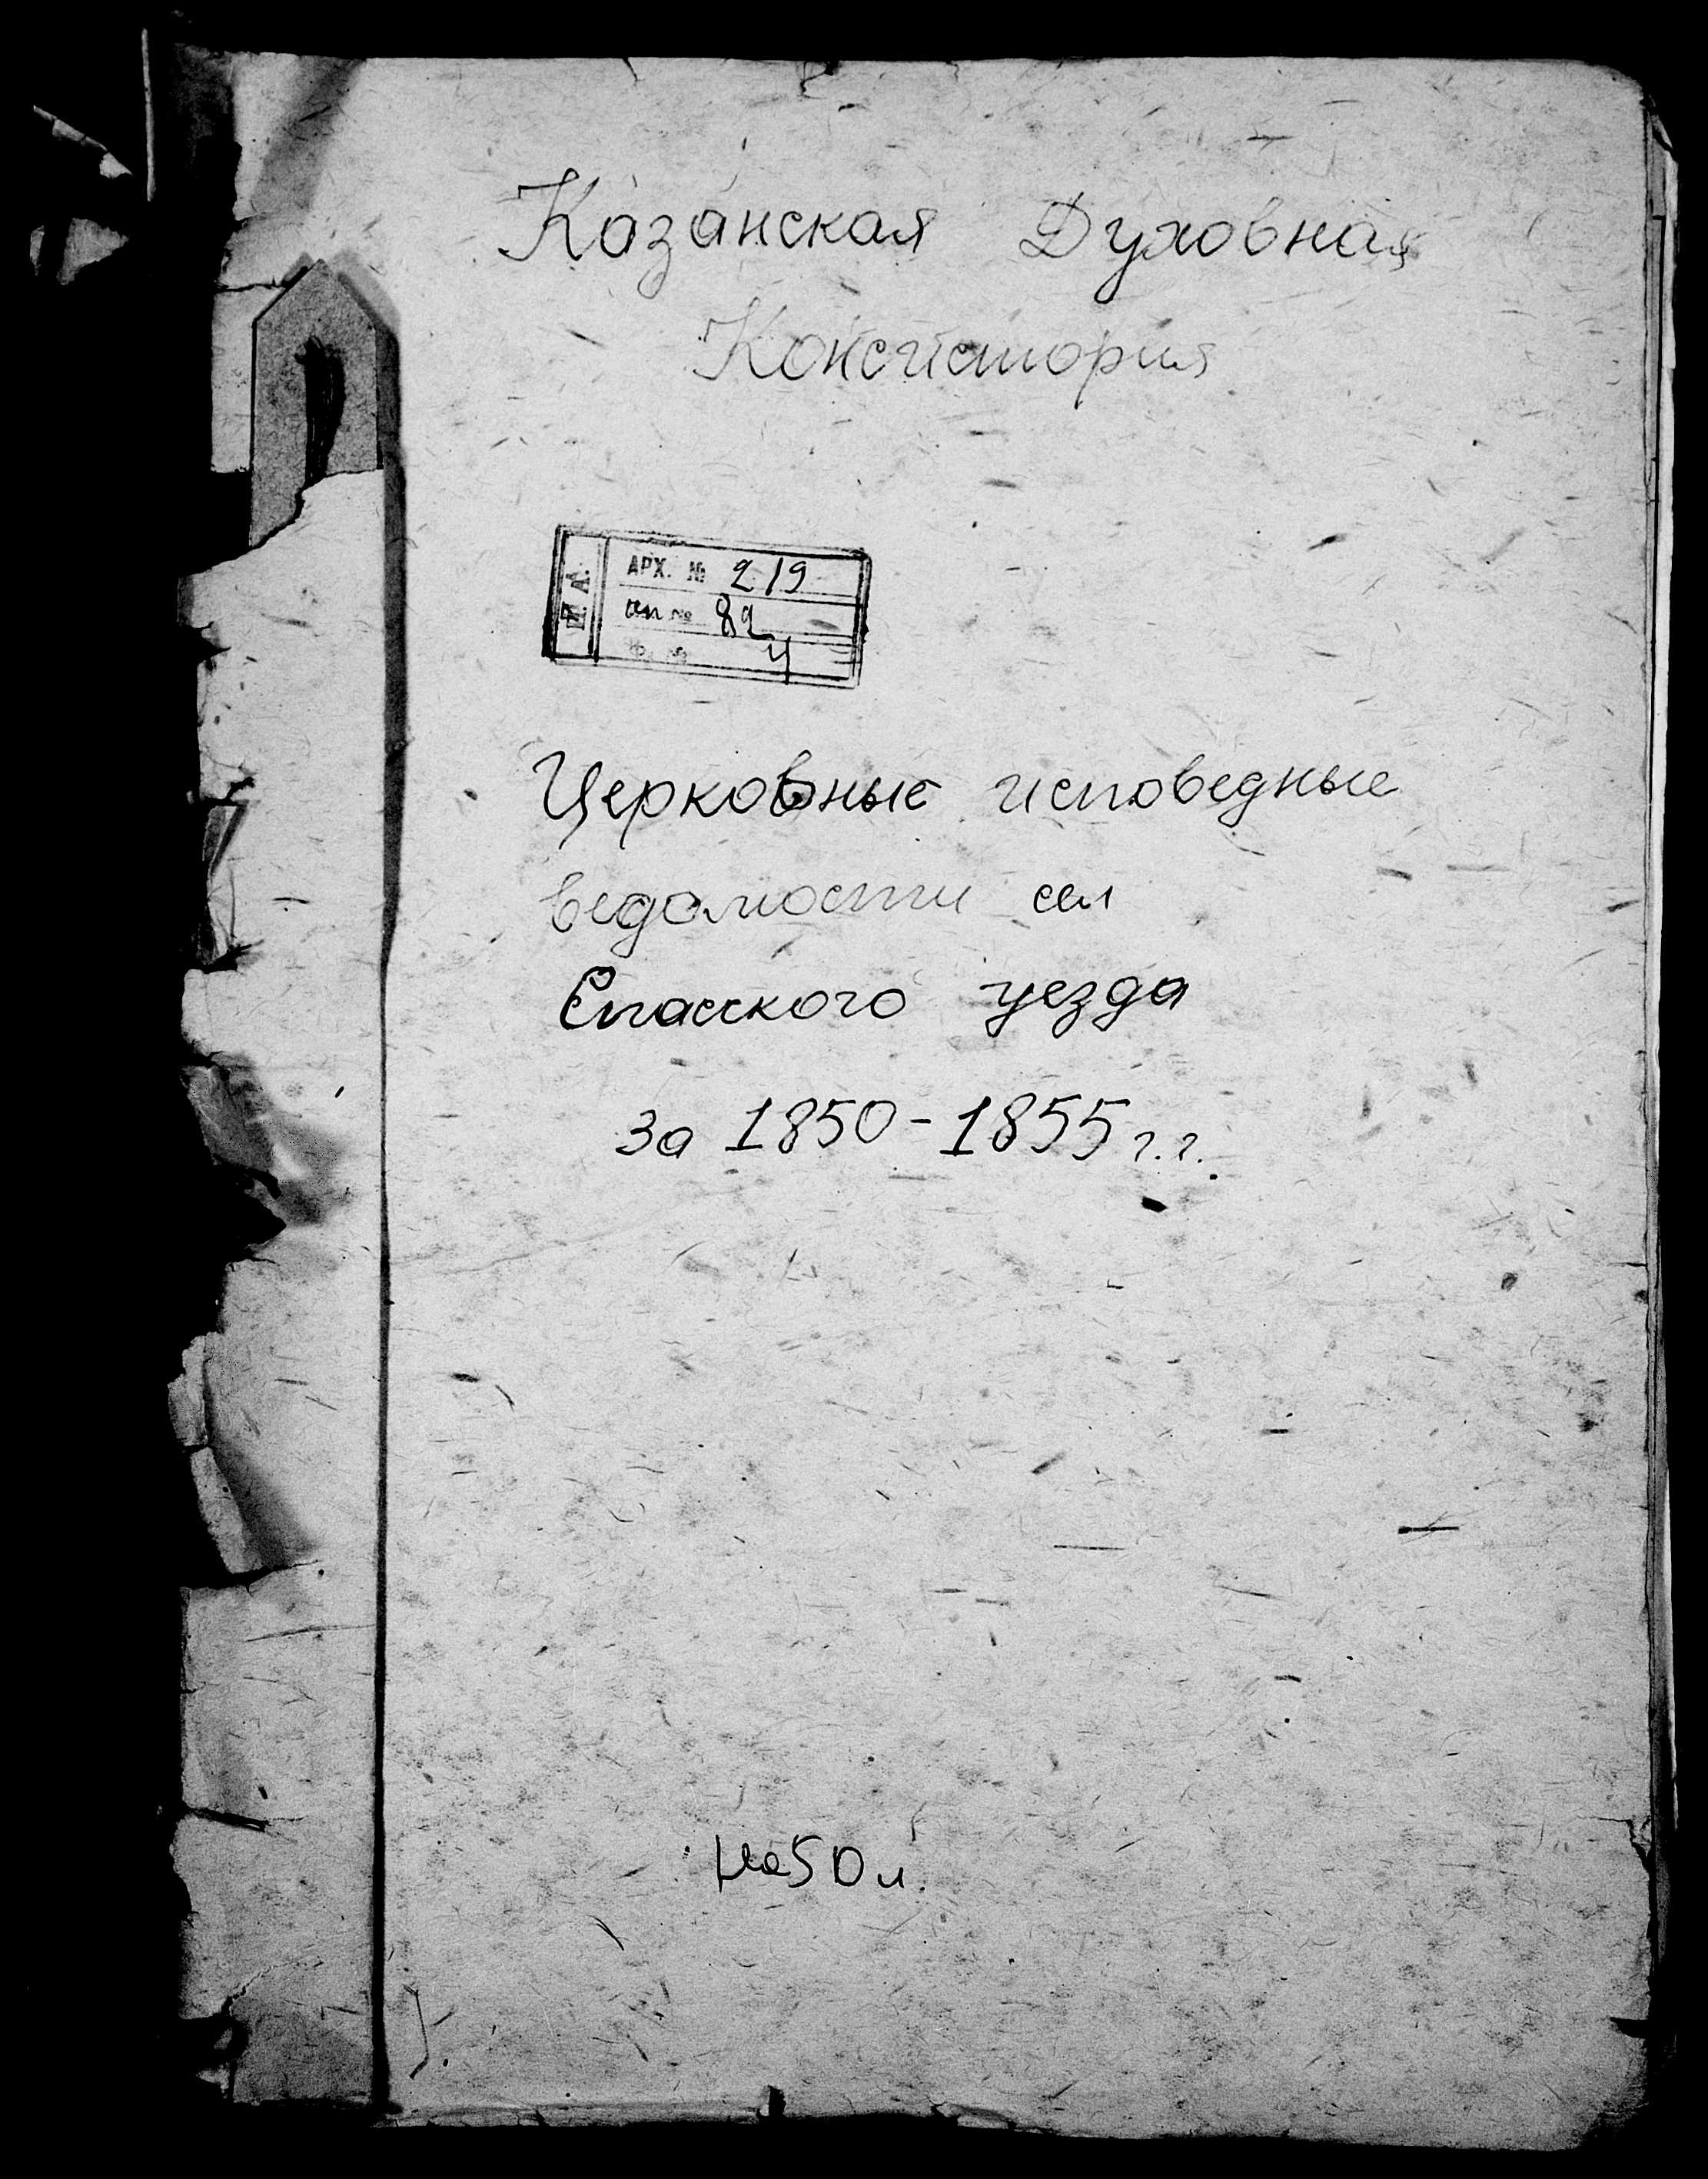 Казанская Духовная
Консистория
Ц.А.
АРХ. № 219
оп № 82
Ф. № 4
Церковные исповедные
ведомости сел
Спасского уезда
за 1850-1855 г.г.
На 50 л.